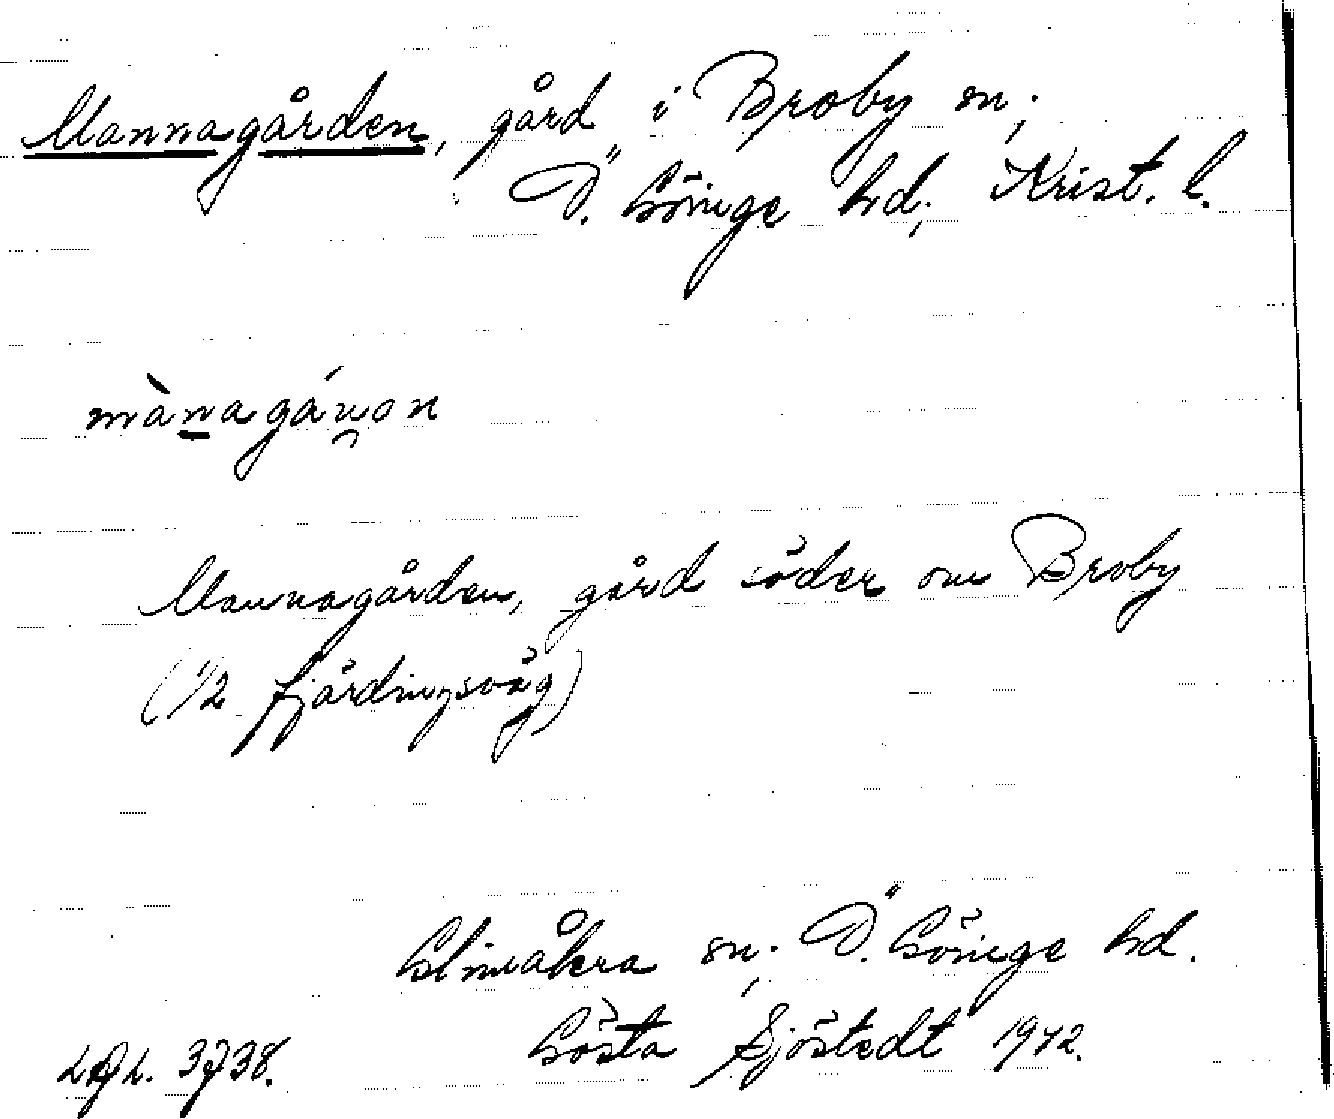 Mannagården, gård i Broby sn;
Ö. Göinge hd; Krist. l.
Mannagården, gård söder om Broby
(1/2 fjärdingsväg)
Glimåkra sn; Ö. Göinge hd.
Gösta Sjöstedt 1942.
3738.